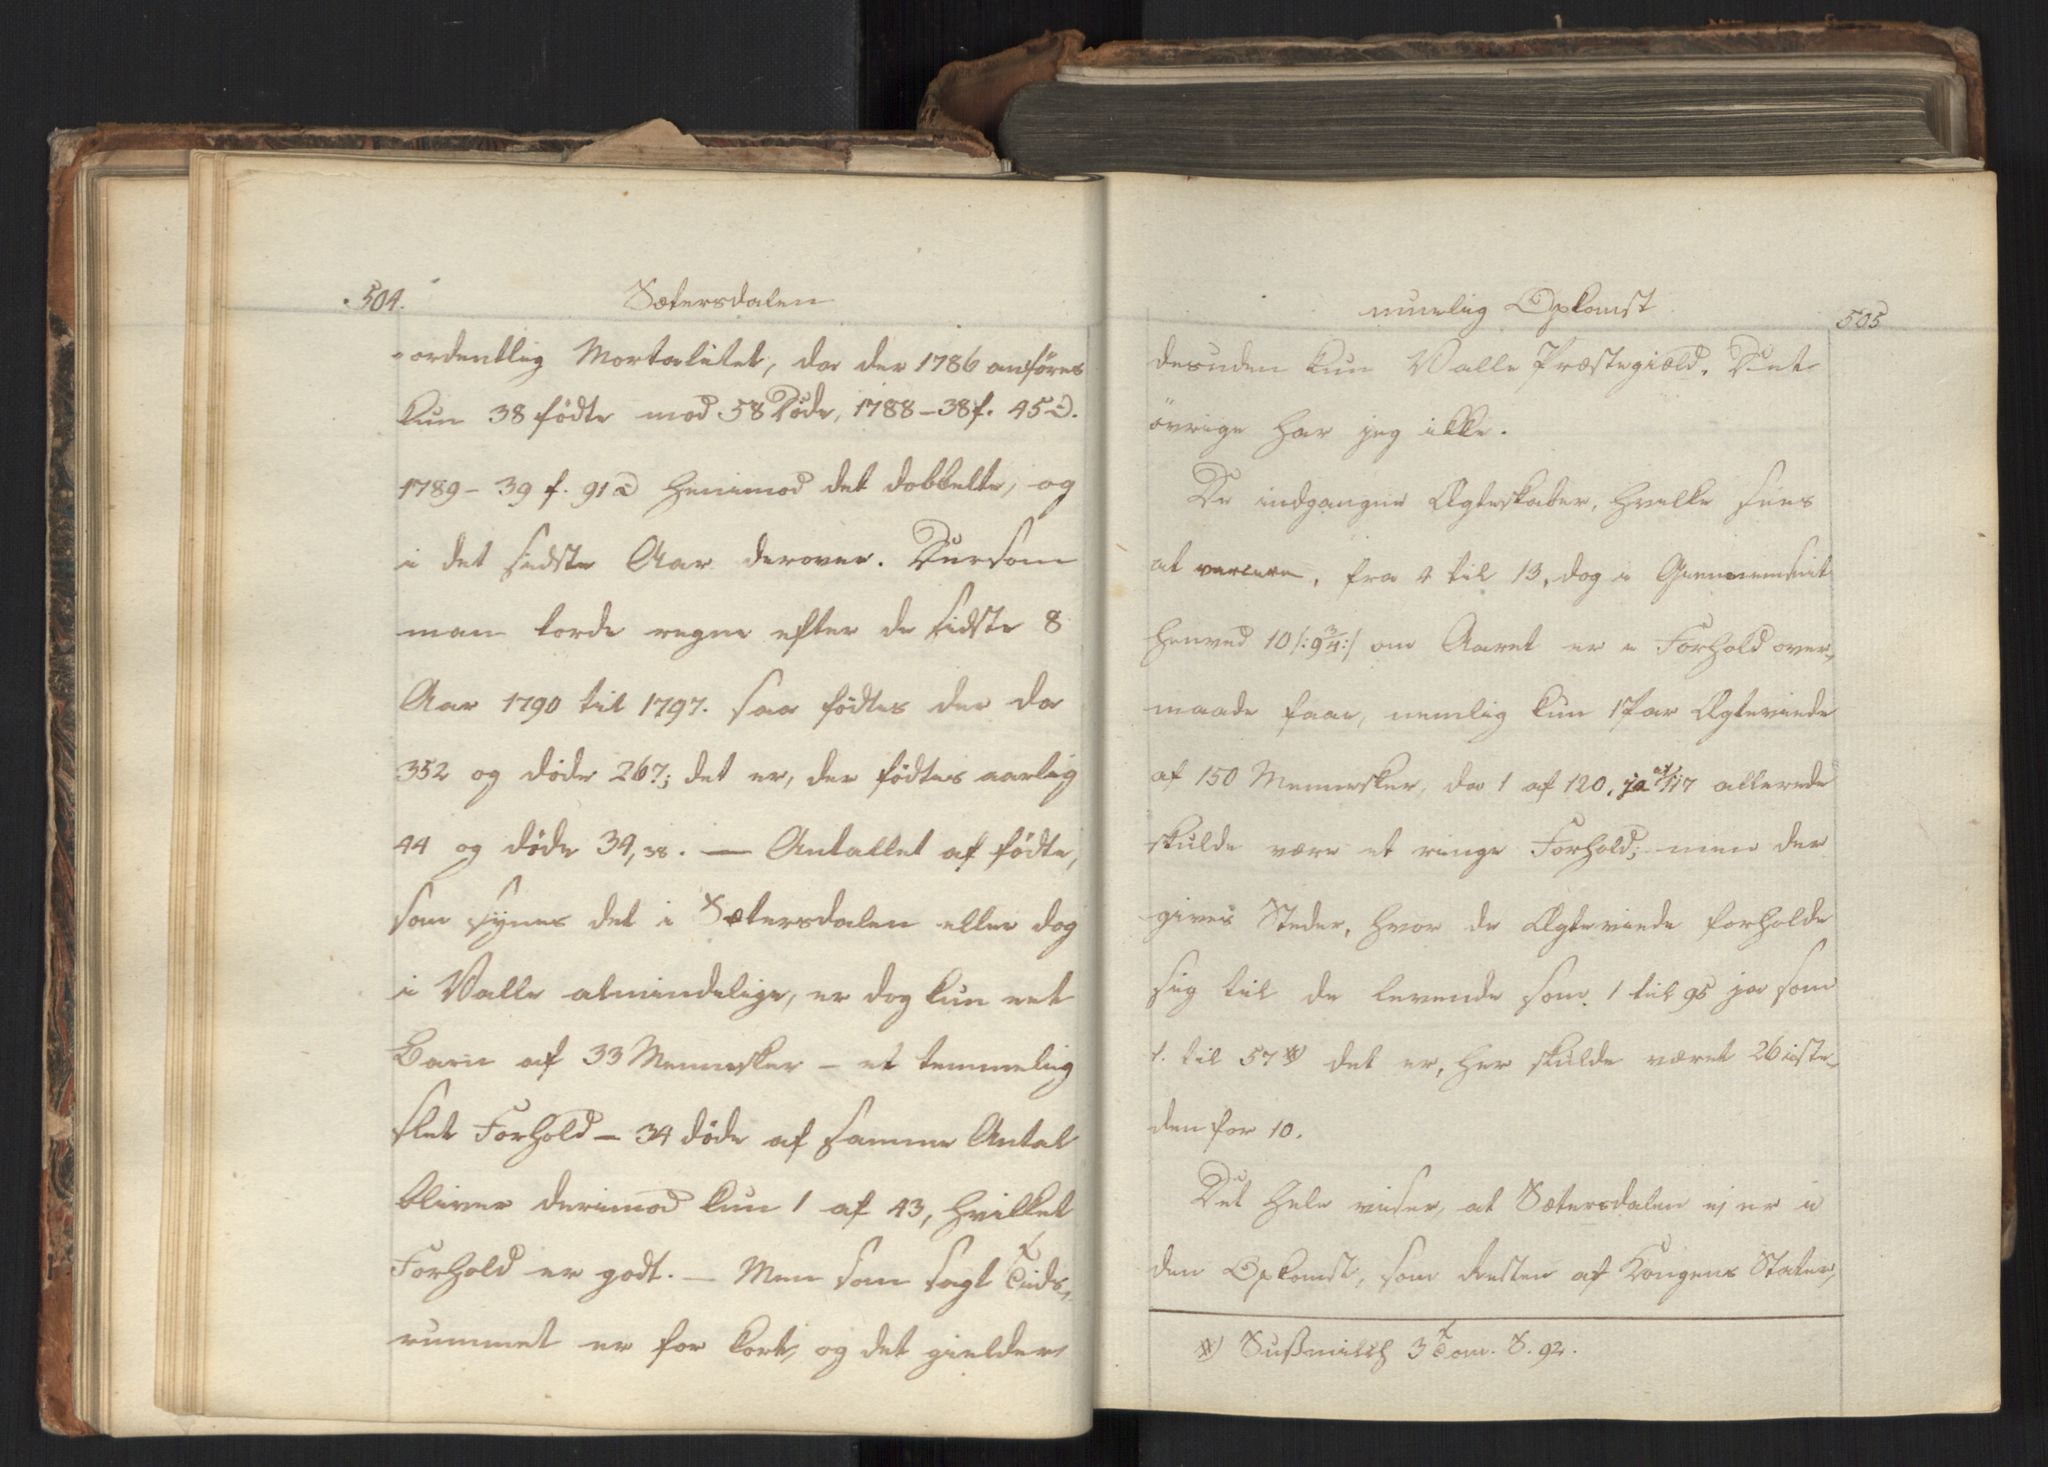 504.
Sætersdalen
-ordentlig Mortalitet, da der 1786 anføres
kun 38 fødte mod 58 Døde, 1788 – 38 f. 45 D.
1789 – 39 f. 91 D henimod det dobbelte, og
i det sidste Aar derover. Dersom
man torde regne efter de sidste 8
Aar 1790 til 1797. saa fødtes der da
352 og døde 267; det er, der fødtes aarlig
44 og døde 34,38. — Antallet af fødte,
som synes det i Sætersdalen eller dog
i Valle almindelige, er dog kun eet
Barn af 33 Mennesker – et temmelig
slet Forhold – 34 døde af samme Antal
bliver derimod kun 1 af 43, hvilket
Forhold er godt. – Men som sagt Tids-
rummet er for kort, og det gielder
nuelig Opkomst
505
desuden kun Valle Præstegiæld. Det
övrige har jeg ikke.
De indgangne Ægteskaber, hvilke sees
at variere, fra 4 til 13, dog i Giennemsnit
henved 10 /: 9 3/4 :/ om Aaret er i Forhold over-
maade faae, nemlig kun 1 Par Ægteviede
af 150 Mennesker, da 1 af 120, ja af 117 allerede
skulde være et ringe Forhold; men der
gives Steder, hvor de Ægteviede forholde
sig til de levende som 1 til 95 ja som
1. til 57 *) det er, her skulde været 26 iste-
den for 10.
Det hele viser, at Sætersdalen ej er i
den Opkomst, som Resten af Kongens Stater,
*) Sußmilch 3 Tom. S. 92.